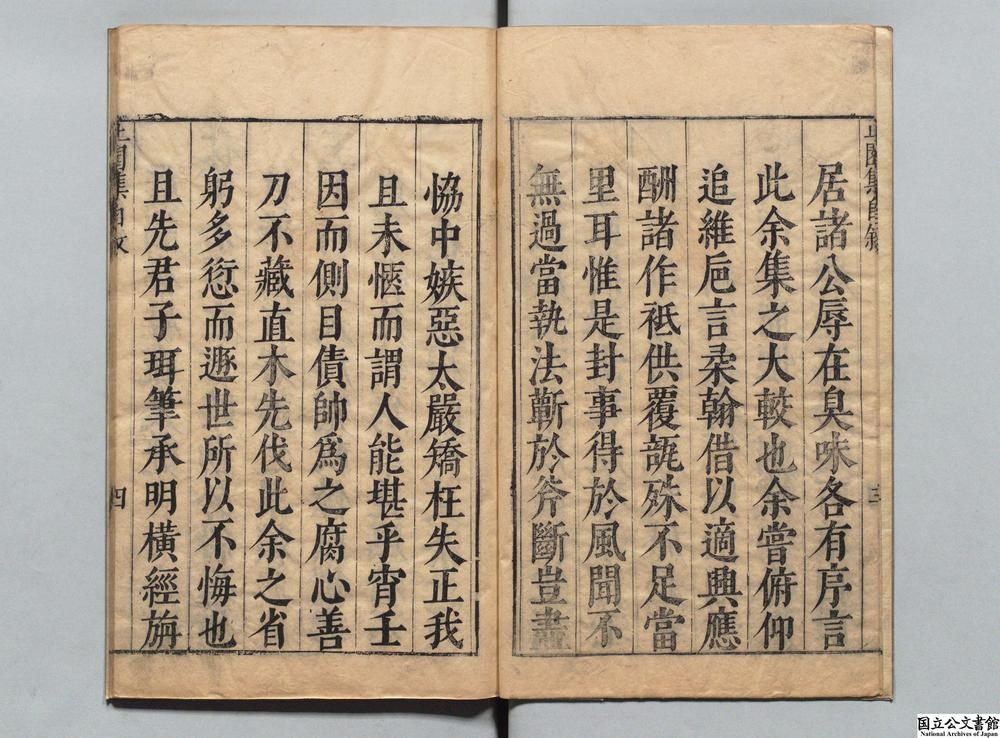 居諸公辱在臭味各有序言
此余集之大較也余嘗俯仰
追維巵言柔翰借以適興應
酬諸作祗供覆瓿殊不足當
里耳惟是封事得於風聞不
無過當執法斬於斧斷豈盡
三
恊中嫉惡太嚴矯枉失正我
且未愜而謂人能堪乎宵壬
因而側目債帥爲之腐心善
刀不藏直木先伐此余之省
躬多愆而遯世所以不悔也
且先君子珥筆承明橫經旃
四
国立公文書館
National Archives of Japan